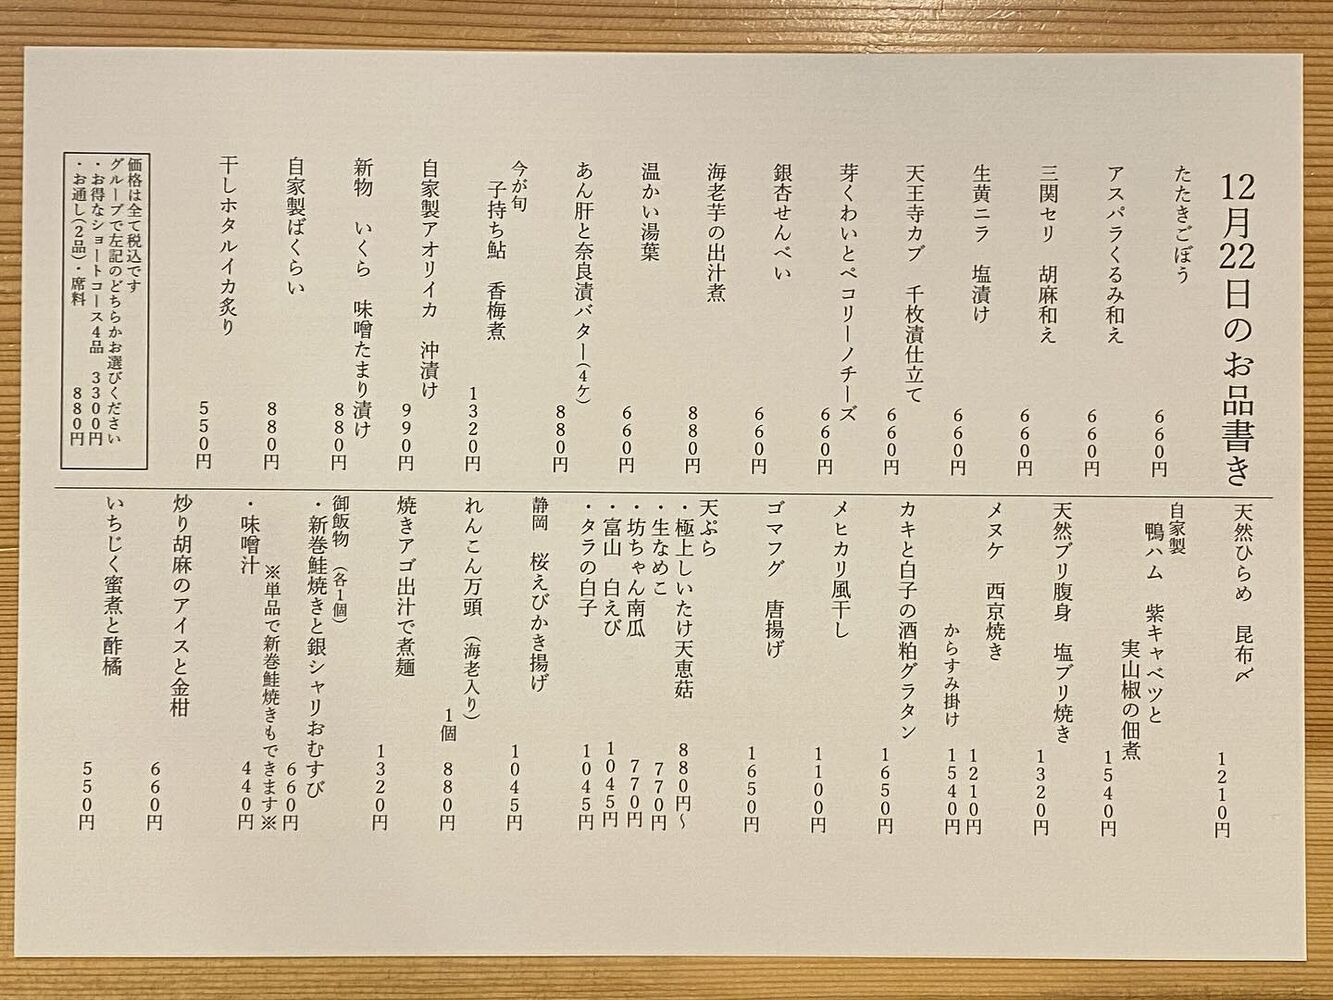 12月22日のお品書き
たたきごぼう
660円
アスパラくるみ和え
660円
三関セリ 胡麻和え
660円
生黄ニラ 塩漬け
660円
天王寺カブ 千枚漬仕立て
660円
芽くわいとペコリーノチーズ
660円
銀杏せんべい
660円
海老芋の出汁煮
880円
温かい湯葉
660円
あん肝と奈良漬バター(4ケ)
880円
今が旬
子持ち鮎 香梅煮
1320円
自家製アオリイカ 沖漬け
990円
新物 いくら 味噌たまり漬け
880円
自家製ばくらい
880円
干しホタルイカ炙り
550円
価格は全て税込です
グループで左記のどちらかお選びください
・お得なショートコース4品 3300円
・お通し(2品)・席料 880円
天然ひらめ 昆布〆
1210円
自家製
鴨ハム 紫キャベツと
実山椒の佃煮
1540円
天然ブリ腹身 塩ブリ焼き
1320円
メヌケ 西京焼き
1210円
からすみ掛け 1540円
カキと白子の酒粕グラタン
1650円
メヒカリ風干し
1100円
ゴマフグ 唐揚げ
1650円
天ぷら
・極上しいたけ天恵菇 880円~
・生なめこ 770円
・坊ちゃん南瓜 770円
・富山 白えび 1045円
・タラの白子 1045円
静岡 桜えびかき揚げ
1045円
れんこん万頭 (海老入り)
1個 880円
焼きアゴ出汁で煮麺
1320円
御飯物 (各1個)
・新巻鮭焼きと銀シャリおむすび
660円
※単品で新巻鮭焼きもできます※
・味噌汁 440円
炒り胡麻のアイスと金柑
660円
いちじく蜜煮と酢橘
550円